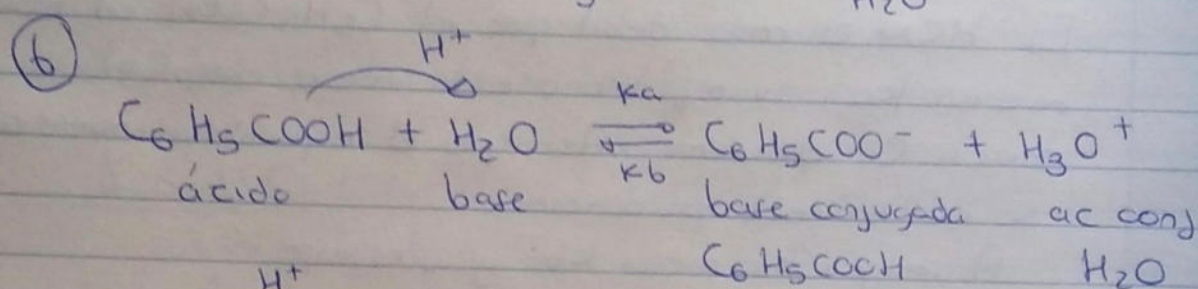 H₂O
⑥ H⁺
ka
C₆H₅COOH + H₂O ⇌ C₆H₅COO⁻ + H₃O⁺
kb
ácido base base conjugada ac conj
C₆H₅COOH H₂O
H⁺